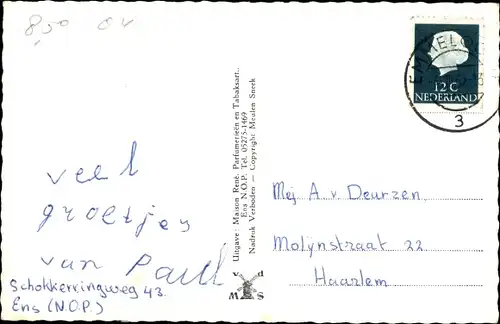 8,50 04
veel
groetjes
van Paul
Schokkerringweg 43.
Ens (N.O.P.)
Uitgave: Maison René, Parfumerieën en Tabaksart.,
Ens N.O.P. Tel. 05275-1469
Nadruk Verboden — Copyright Mealen Sneek
v d
M S
12 C
NEDERLAND
3
Mej A. v Deurzen.
Molynstraat 22
Haarlem